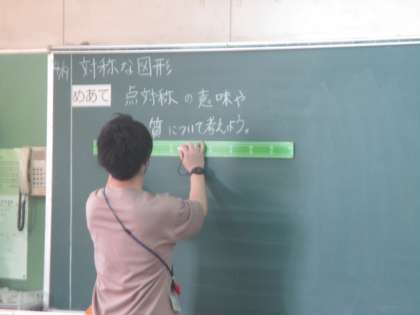 対称な図形
めあて 点対称の意味や
質について考えよう。